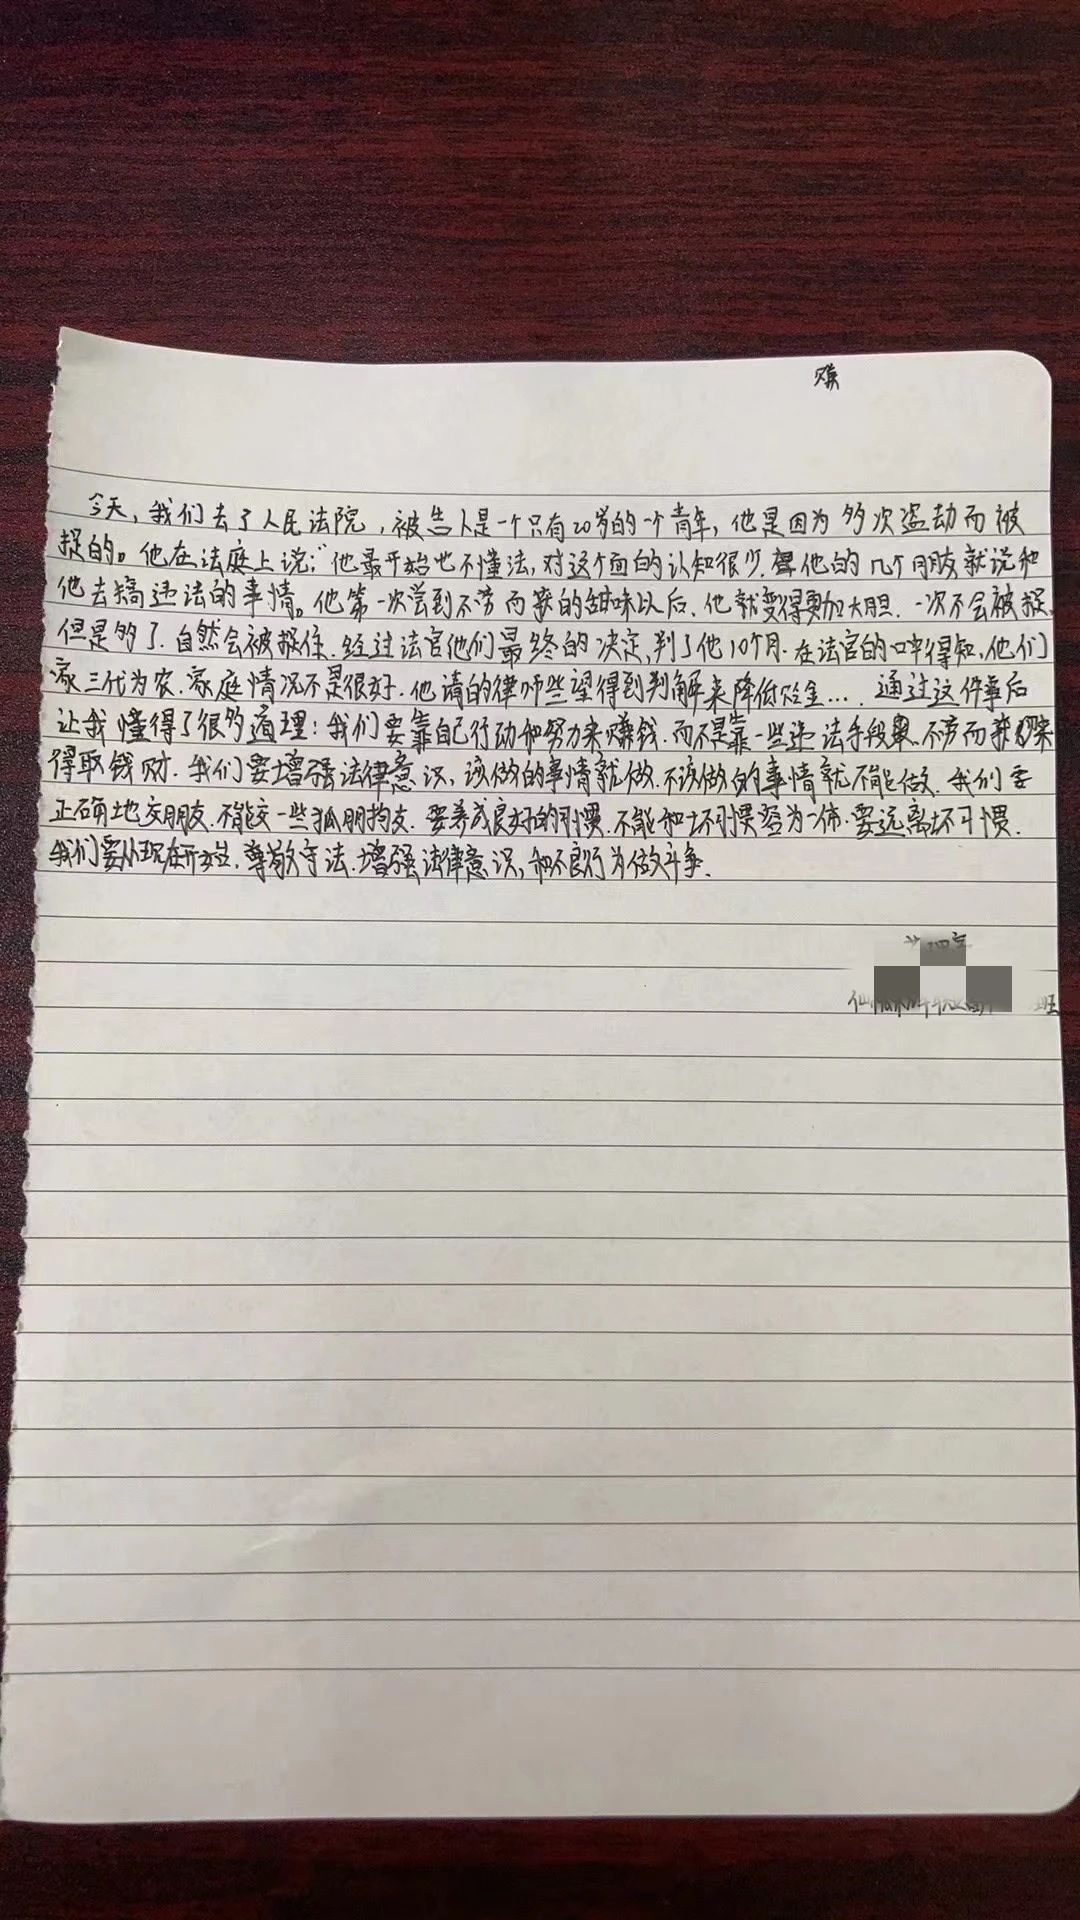 今天，我们去了人民法院，被告人是一个只有20岁的一个青年，他是因为多次盗劫而被
捉的。他在法庭上说：“他最开始也不懂法，对这个面的认知很少.他的几个朋友就说和
他去搞违法的事情。他第一次尝到不劳而获的甜味以后.他就变得更加大胆.一次不会被捉.
但是多了.自然会被捉住.经过法官他们最终的决定,判了他10个月.在法官的口中得知,他们
家三代为农.家庭情况不是很好.他请的律师些望得到判解来降低罚金... 通过这件事后
让我懂得了很多道理：我们要靠自己行动和努力来赚钱.而不是靠一些违法手段.不劳而获来
得取钱财.我们要增强法律意识,该做的事情就做.不该做的事情就不能做.我们要
正确地交朋友.不能交一些狐朋狗友.要养成良好的习惯.不能和坏习惯混为一佈.要远离坏习惯.
我们要从现在开始.尊敬守法.增强法律意识,和不良行为做斗争.
班